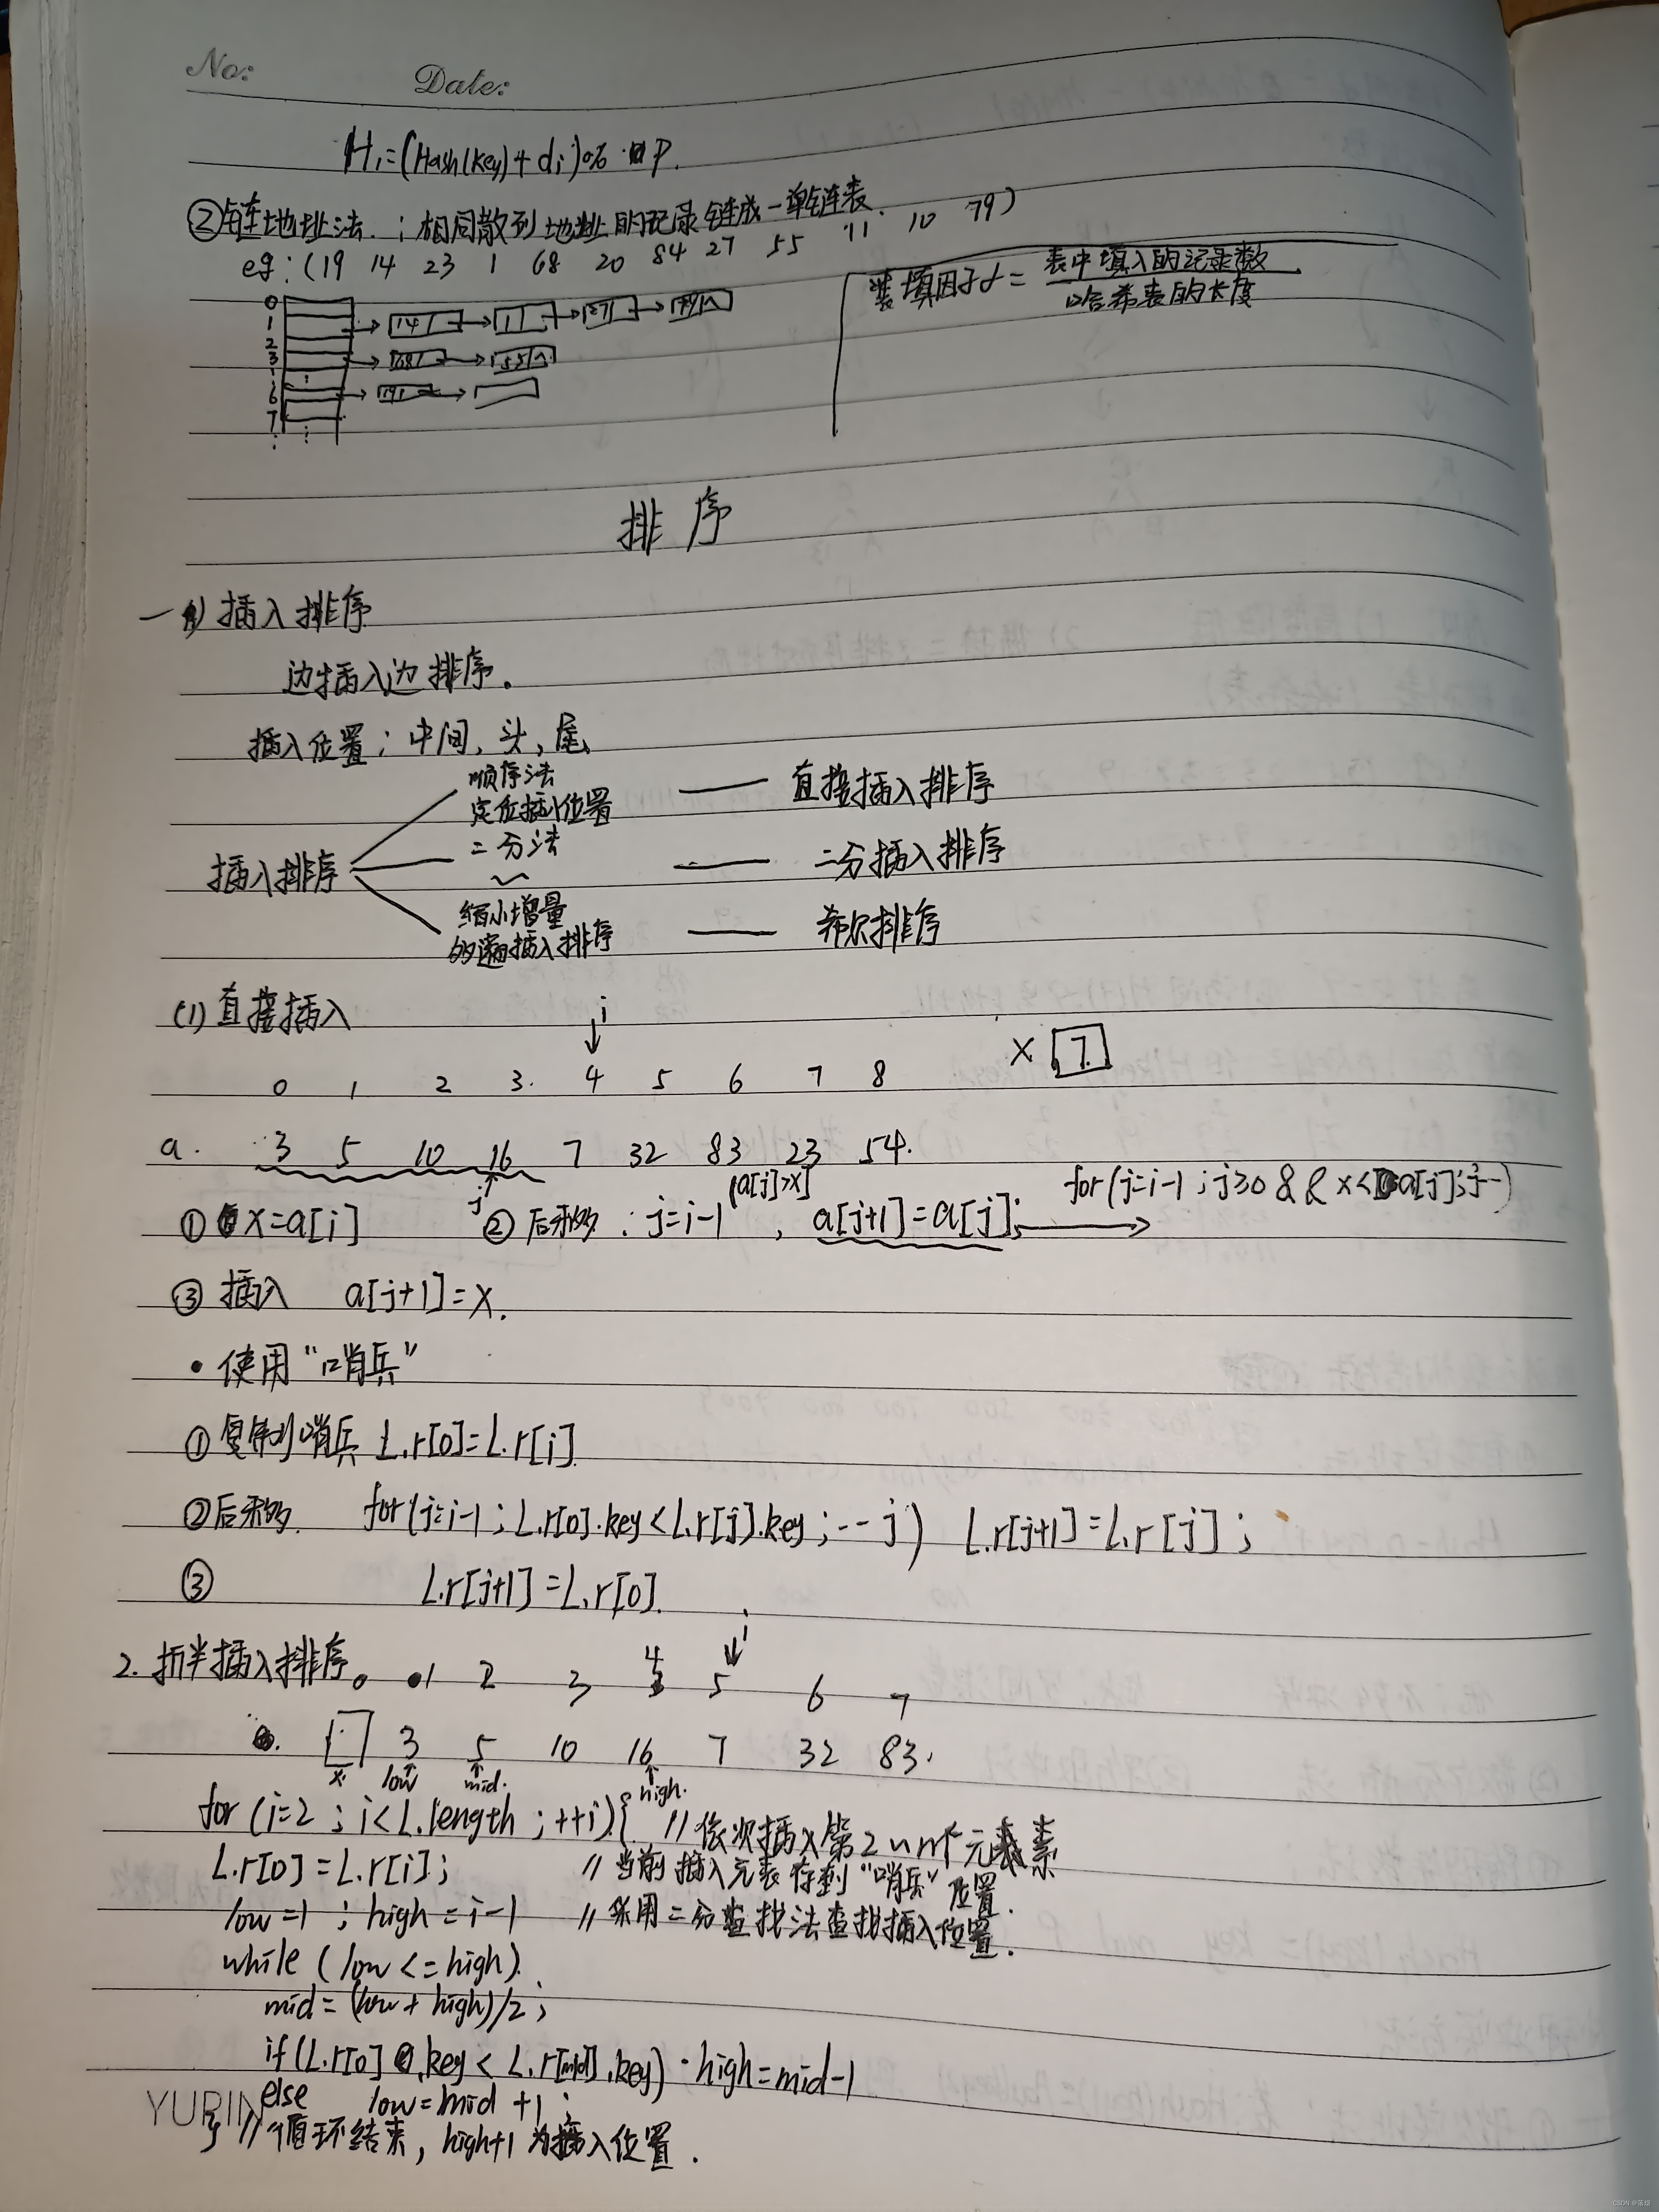 No:
Date:
Hi=(Hash(key)+di)% P.
②链地址法.:相同散列地址的记录链成一单链表.
eg:(19 14 23 1 68 20 84 27 55 11 10 79)
装填因子α= 表中填入的记录数
哈希表的长度
0
1 14 1 27 79 ∧
2
3 68 55 ∧
6 19
7
排序
一 插入排序
边插入边排序.
插入位置:中间,头,尾
顺序法
定位插入位置 —— 直接插入排序
插入排序 二分法 —— 二分插入排序
缩小增量
多遍插入排序 —— 希尔排序
(1)直接插入 i
x 7
0 1 2 3. 4 5 6 7 8
a. 3 5 10 16 7 32 83 23 54.
j
(a[j]>x) for(j=i-1;j≥0&&x<a[j];j--)
①x=a[i] ②后移:j=i-1, a[j+1]=a[j];
③插入 a[j+1]=x.
•使用"哨兵"
①复制到哨兵 L.r[0]=L.r[i]
②后移. for(j=i-1;L.r[0].key<L.r[j].key;--j) L.r[j+1]=L.r[j];
③ L.r[j+1]=L.r[0].
i
2.折半插入排序. 1 2 3 4 5 6 7
3 5 10 16 7 32 83.
x. low mid. high.
for(i=2;i<L.length;++i){ //依次插入第2~n个元素
L.r[0]=L.r[i]; //当前插入元素存到"哨兵"位置.
low=1;high=i-1 //采用二分查找法查找插入位置.
while(low<=high).
mid=(low+high)/2;
if(L.r[0].key<L.r[mid].key)high=mid-1
else low=mid+1;
} //循环结束,high+1为插入位置.
YURIN
CSDN